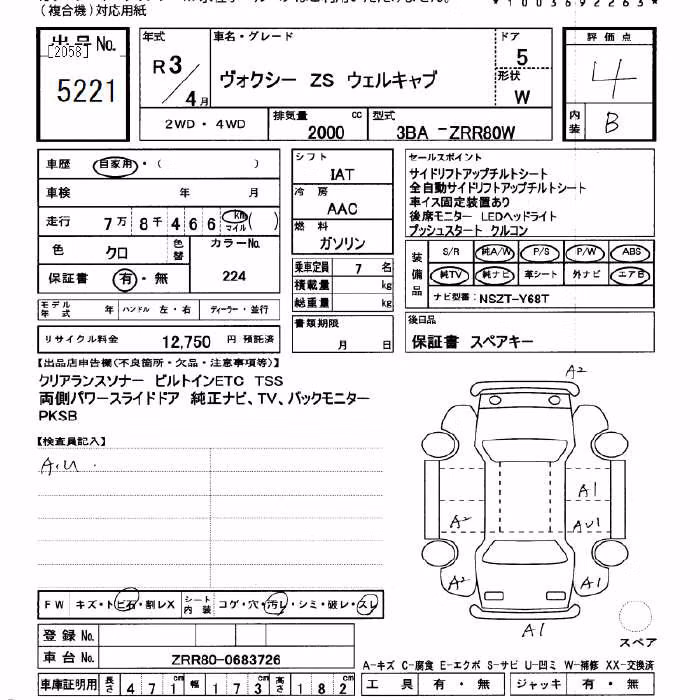 (複合機)対応用紙
*1003692263*
出品No.
[2058]
5221
年式
R3/4月
車名・グレード
ヴォクシー ZS ウェルキャブ
ドア
5
形状
W
評価点
4
内装
B
2WD・4WD
排気量
2000
cc
型式
3BA -ZRR80W
車歴
自家用・( )
車検 年 月
走行 7万8千466 km マイル ( )
色
クロ
色替
カラーNo.
224
保証書
有・無
モデル年式 年
ハンドル 左・右
ディーラー・並行
リサイクル料金 12,750 円 預託済
シフト
IAT
冷房
AAC
燃料
ガソリン
乗車定員 7 名
積載量 kg
総重量 kg
書類期限
月 日
セールスポイント
サイドリフトアップチルトシート
全自動サイドリフトアップチルトシート
車イス固定装置あり
後席モニター LEDヘッドライト
プッシュスタート クルコン
装備品
S/R 純A/W P/S P/W ABS
純TV 純ナビ 革シート 外ナビ エアB
ナビ型番: NSZT-Y68T
後日品
保証書 スペアキー
【出品店申告欄(不良箇所・欠品・注意事項等)】
クリアランスソナー ビルトインETC TSS
両側パワースライドドア 純正ナビ、TV、バックモニター
PKSB
【検査員記入】
A.U.
A2
A1
A2
AU1
A2
A1
A1
スペア
FW キズ・トビ石・割レX
シート内装
コゲ・穴・汚レ・シミ・破レ・スレ
登録No.
車台No. ZRR80-0683726
車庫証明用 長さ 471cm 幅 173cm 高さ 182cm
A-キズ C-腐食 E-エクボ S-サビ U-凹ミ W-補修 XX-交換済
工具 有・無 ジャッキ 有・無